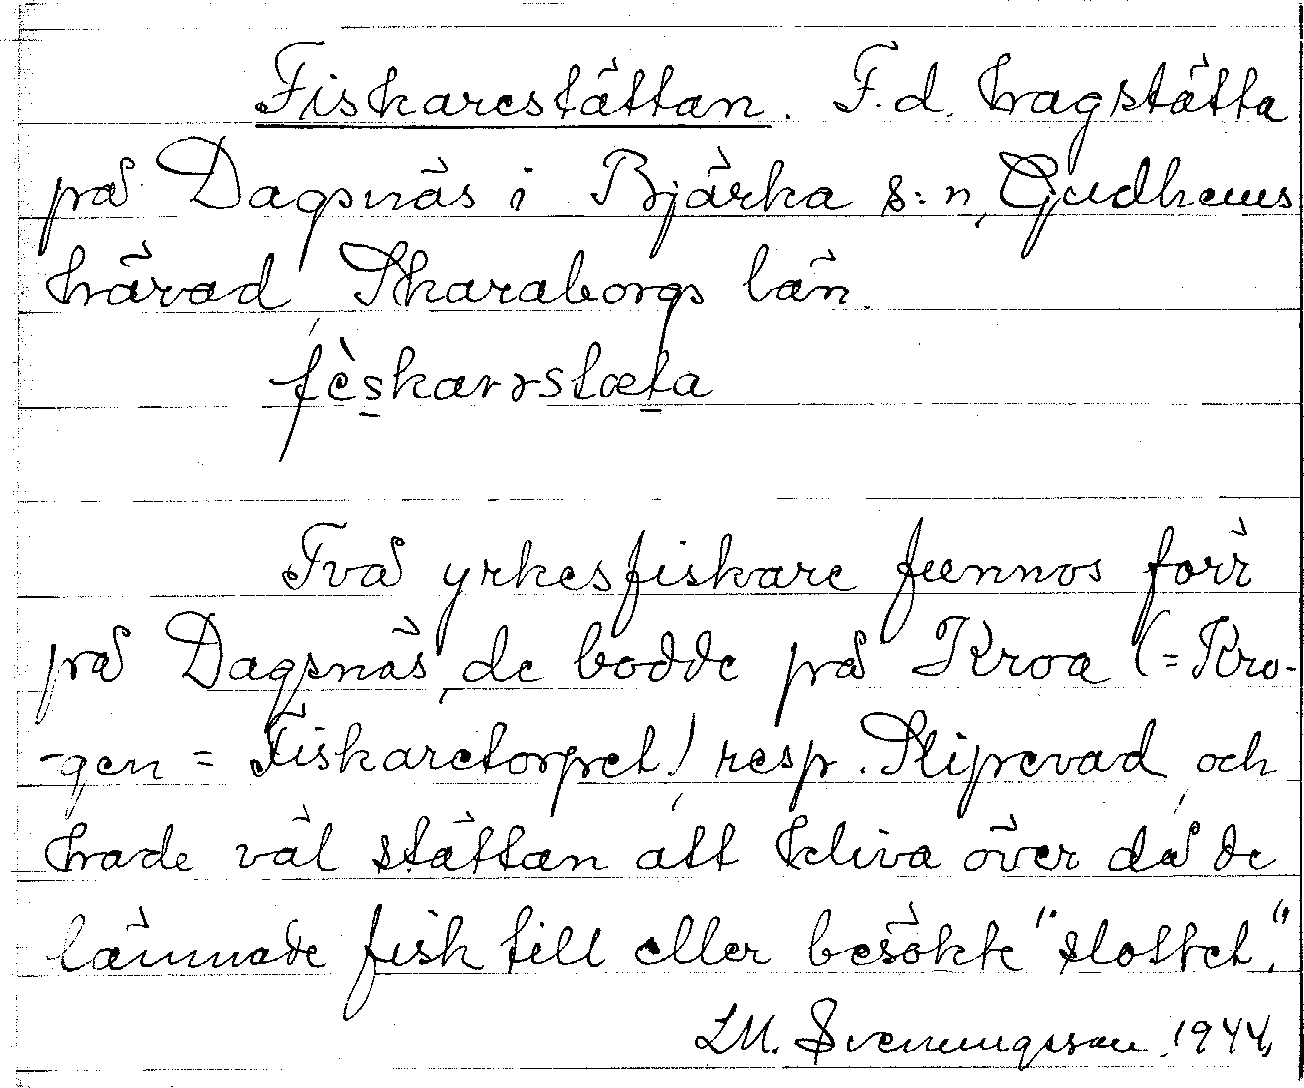 Fiskarestättan. F.d. hagstätta
på Dagsnäs i Bjärka s:n, Gudhems
härad, Skaraborgs län.
fèskarrstæta
Två yrkesfiskare funnos förr
på Dagsnäs, de bodde på Kroa (= Kro-
-gen = Fiskaretorpet) resp. Slipevad, och
hade väl stättan att kliva över då de
lämnade fisk till eller besökte "slottet".
LM. Svenungsson 1944.